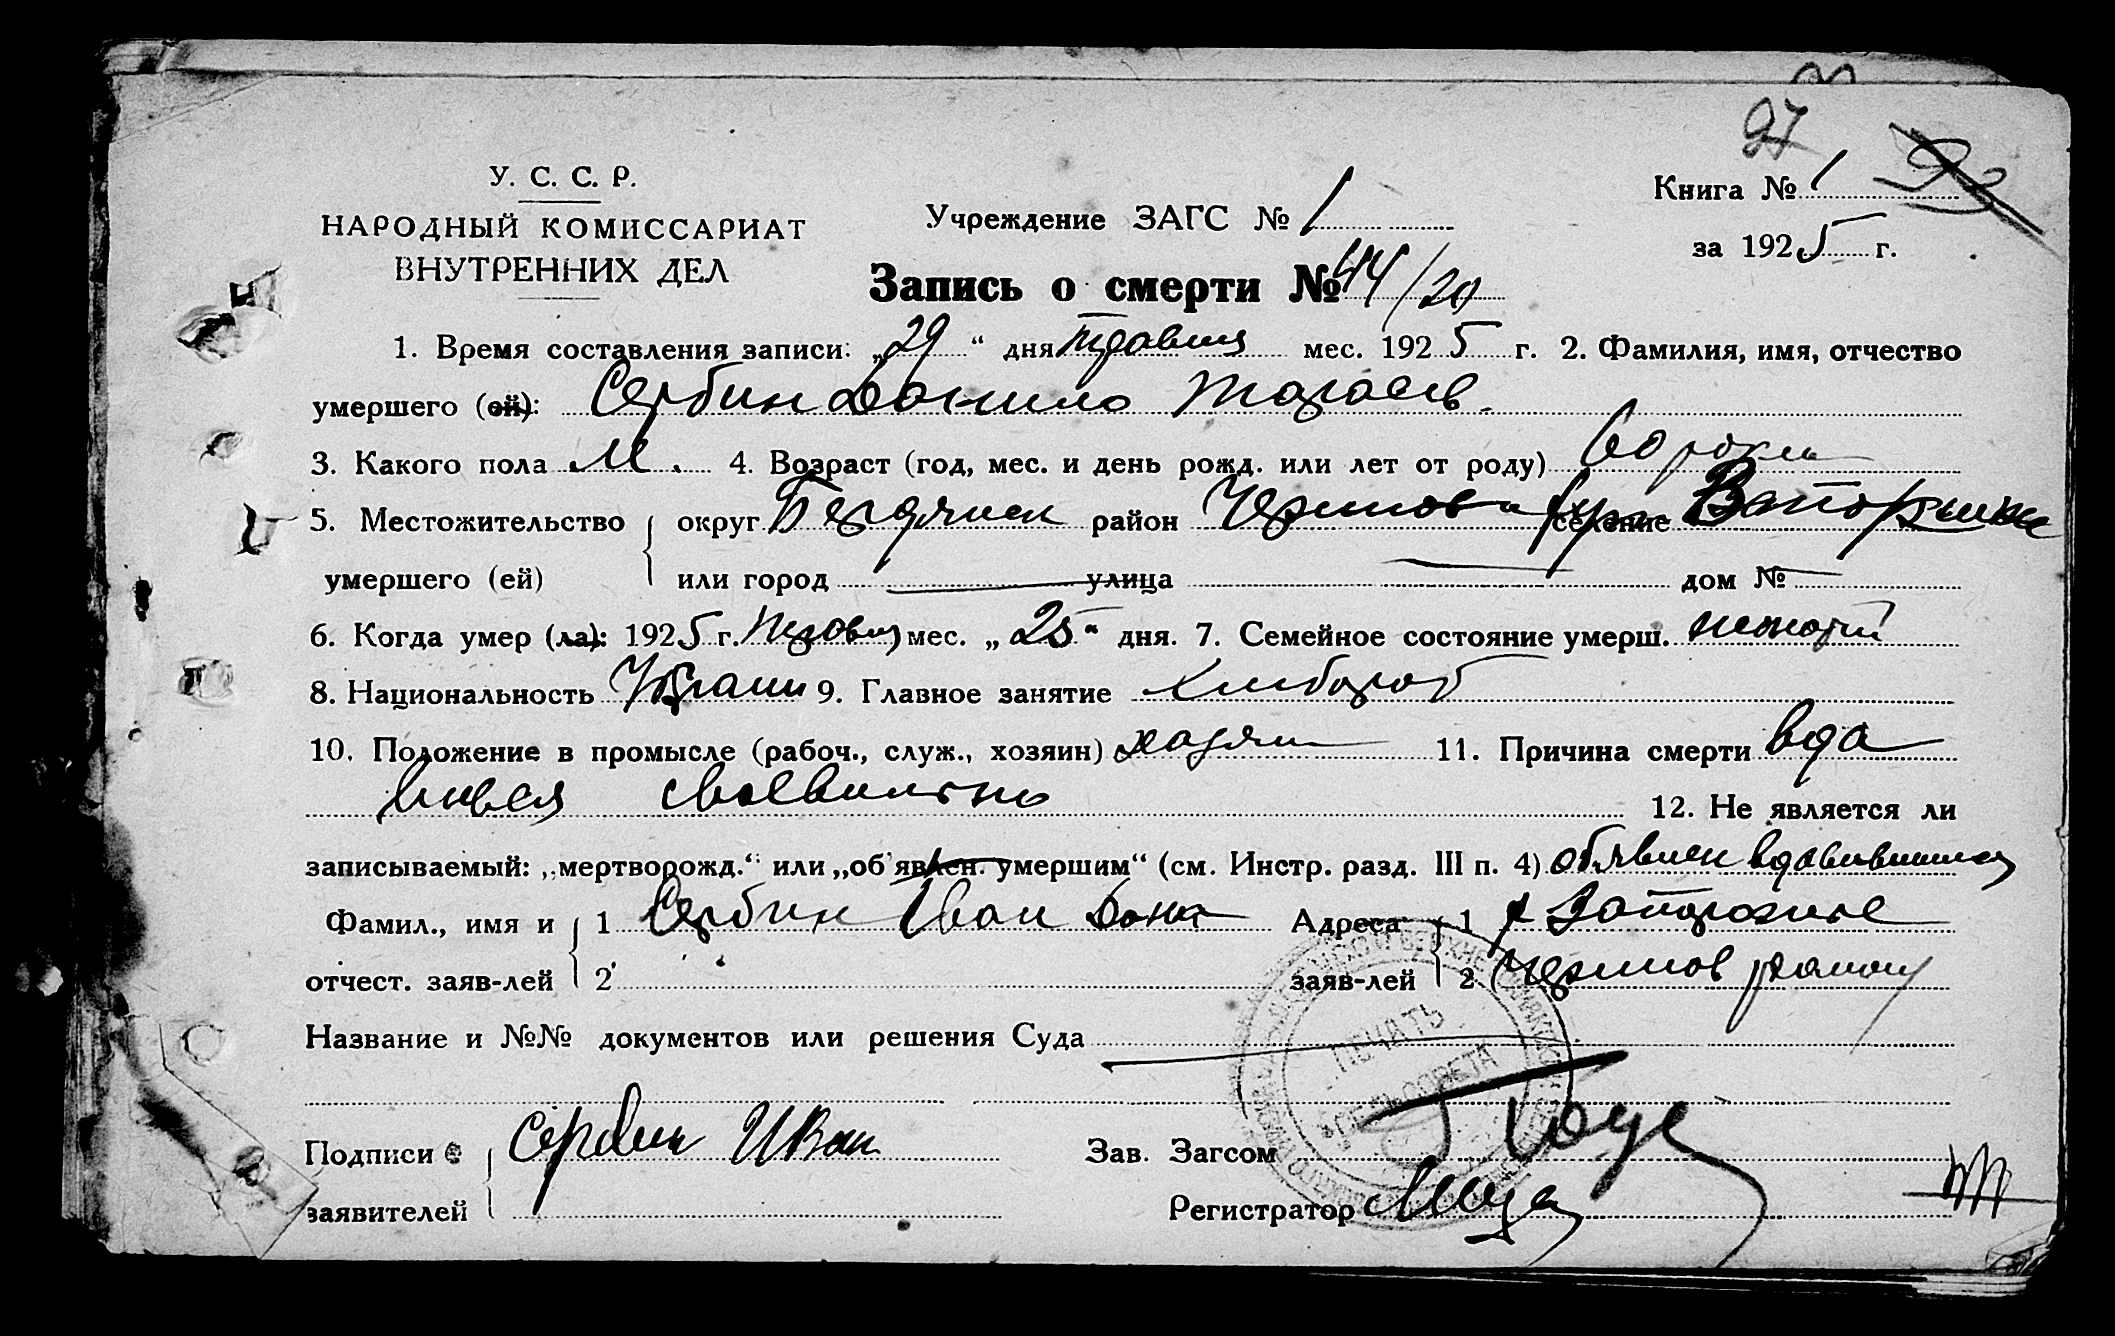 97
У. С. С. Р.
НАРОДНЫЙ КОМИССАРИАТ
ВНУТРЕННИХ ДЕЛ
Учреждение ЗАГС № 1
Книга № 1
за 1925 г.
Запись о смерти № 44/20
1. Время составления записи: „29“ дня травня мес. 1925 г. 2. Фамилия, имя, отчество
умершего (ей): Сербин Данило
3. Какого пола М. 4. Возраст (год, мес. и день рожд. или лет от роду) 60 роки
5. Местожительство округ Бердянск район селение
умершего (ей) или город улица дом №
6. Когда умер (ла): 1925 г. мес. „25“ дня. 7. Семейное состояние умерш. жонатий
8. Национальность Украин 9. Главное занятие хлибороб
10. Положение в промысле (рабоч., служ., хозяин) хазяин 11. Причина смерти вда
вився своевильно
12. Не является ли
записываемый: „мертворожд.“ или „об'явлен. умершим“ (см. Инстр. разд. III п. 4)
Фамил., имя и 1 Сербин Іван Дани Адреса 1
отчест. заяв-лей 2 заяв-лей 2
Название и №№ документов или решения Суда
ПЕЧАТЬ
Подписи Сербин Иван Зав. Загсом
заявителей Регистратор